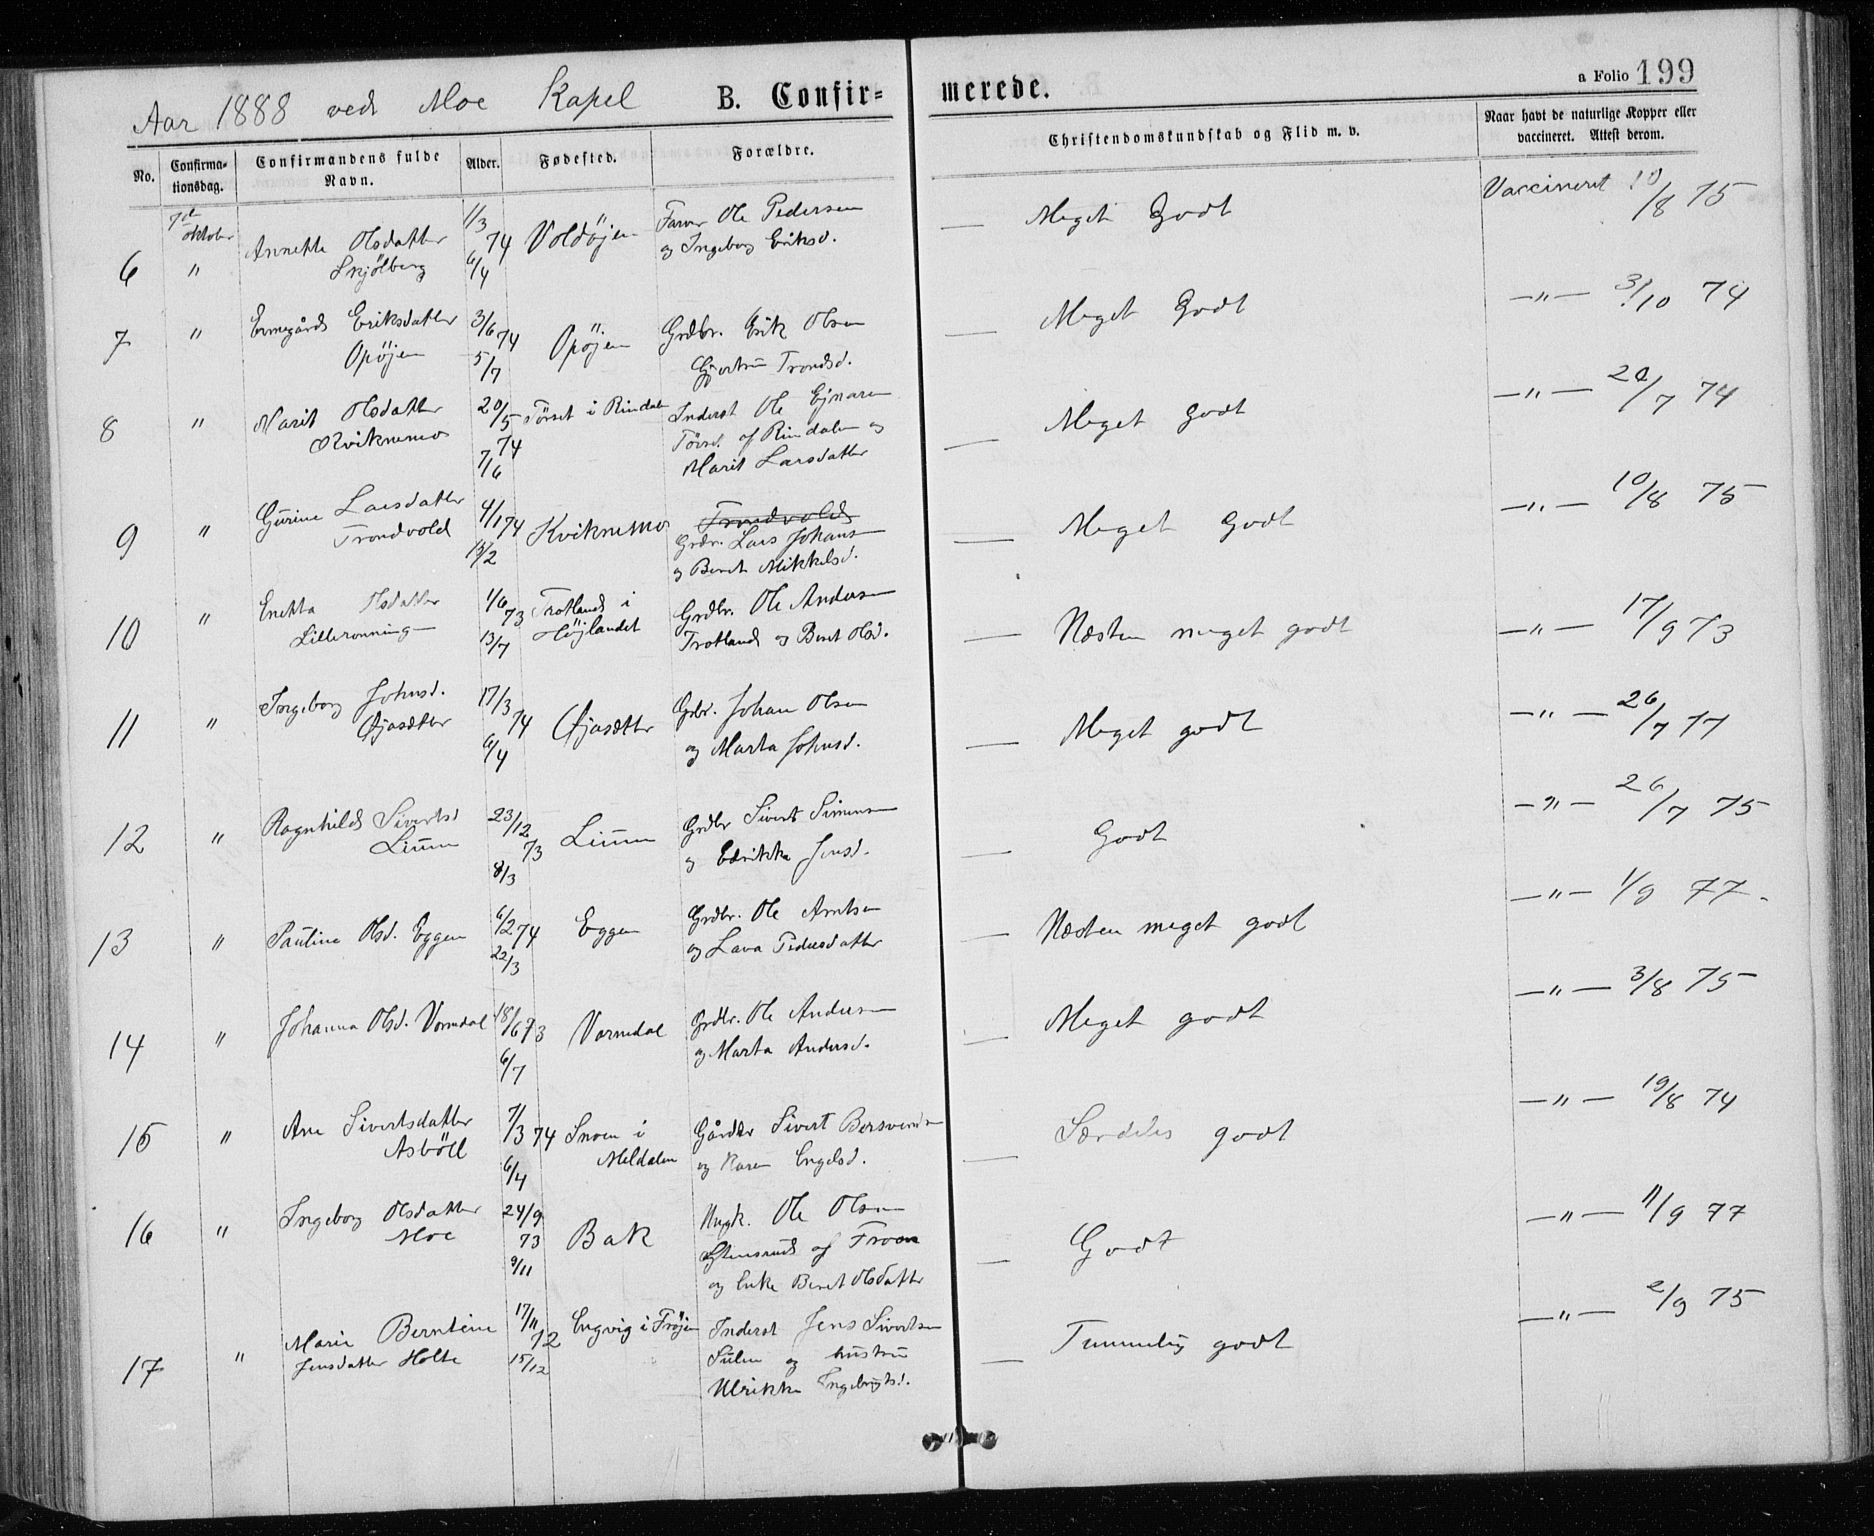 Aar 1888 ved Moe Kapel B. Confir- merede. a Folio 199
No. Confirma- tionsdag. Confirmandens fulde Navn. Alder. Fødested. Forældre. Christendomskundskab og Flid m. v. Naar havt de naturlige Kopper eller vaccineret. Attest derom.
7de oktober 1/3 Farver Ole Pedersen Vaccineret 10/8 75
6 " Annette Olsdatter 74 Voldöjen og Ingeborg Eriksd. — Meget Godt
Skjölberg 6/4
7 " Ermegård Eriksdatter 3/6 74 Opöjen Grdbr. Erik Olsen — Meget Godt —"— 3/10 74
Opöjen 5/7 Gjertru Trondsd.
8 " Marit Olsdatter 20/5 Törset i Rindalen Inderst Ole Ejnarsen — Meget Godt —"— 20/7 74
Kviknemo 74 Törset af Rindalen og
7/6 Marit Larsdatter
9 " Gurine Larsdatter 4/1 74 Kviknemo Trondvold — Meget Godt —"— 10/8 75
Trondvold 15/2 Grdbr. Lars Johans
og Beret Mikkelsd.
10 " Enetta Olsdatter 1/6 73 Trotland i Grdbr. Ole Andersen — Næsten meget godt —"— 17/9 73
Lillerönning 13/7 Höjlandet Trotland og Beret Olsd.
11 " Ingeborg Johnsd. 17/3 74 Øjasætter Grbr. Johan Olsen — Meget godt —"— 26/7 77
Øjasætter 6/4 og Marta Johnsd.
12 " Ragnhild Sivertsd 23/12 73 Lium Grdbr Sivert Simensen — Godt —"— 26/7 75
Lium 8/3 og Edrikka Jonsd.
13 " Pauline Olsd. Eggen 6/2 74 Eggen Grdbr. Ole Arntsen — Næsten meget godt —"— 1/9 77
22/3 og Lava Pedersdatter
14 " Johanna Olsd. Vormdal 18/6 73 Vormdal Grdbr. Ole Andersen — Meget godt —"— 3/8 75
6/7 og Marta Andersd.
15 " Ane Sivertsdatter 7/3 74 Snoen i Gårdbr Sivert Bersvends — Særdeles godt —"— 19/8 74
Asböll 6/4 Meldalen og Karen Engelsd.
16 " Ingeborg Olsdatter 24/9 Bak Ungk. Ole Olsen — Godt —"— 11/9 77
Moe 73 af Froen
9/11 og Enke Beret Olsdatter
17 " Marie Berntine 17/11 72 Engvig i Fröjen Inderst Jens Sivertsen — Temmelig godt —"— 2/9 75
Jensdatter Holte 15/12 Sulen og hustru
Ulrikke Ingebrigtsd.